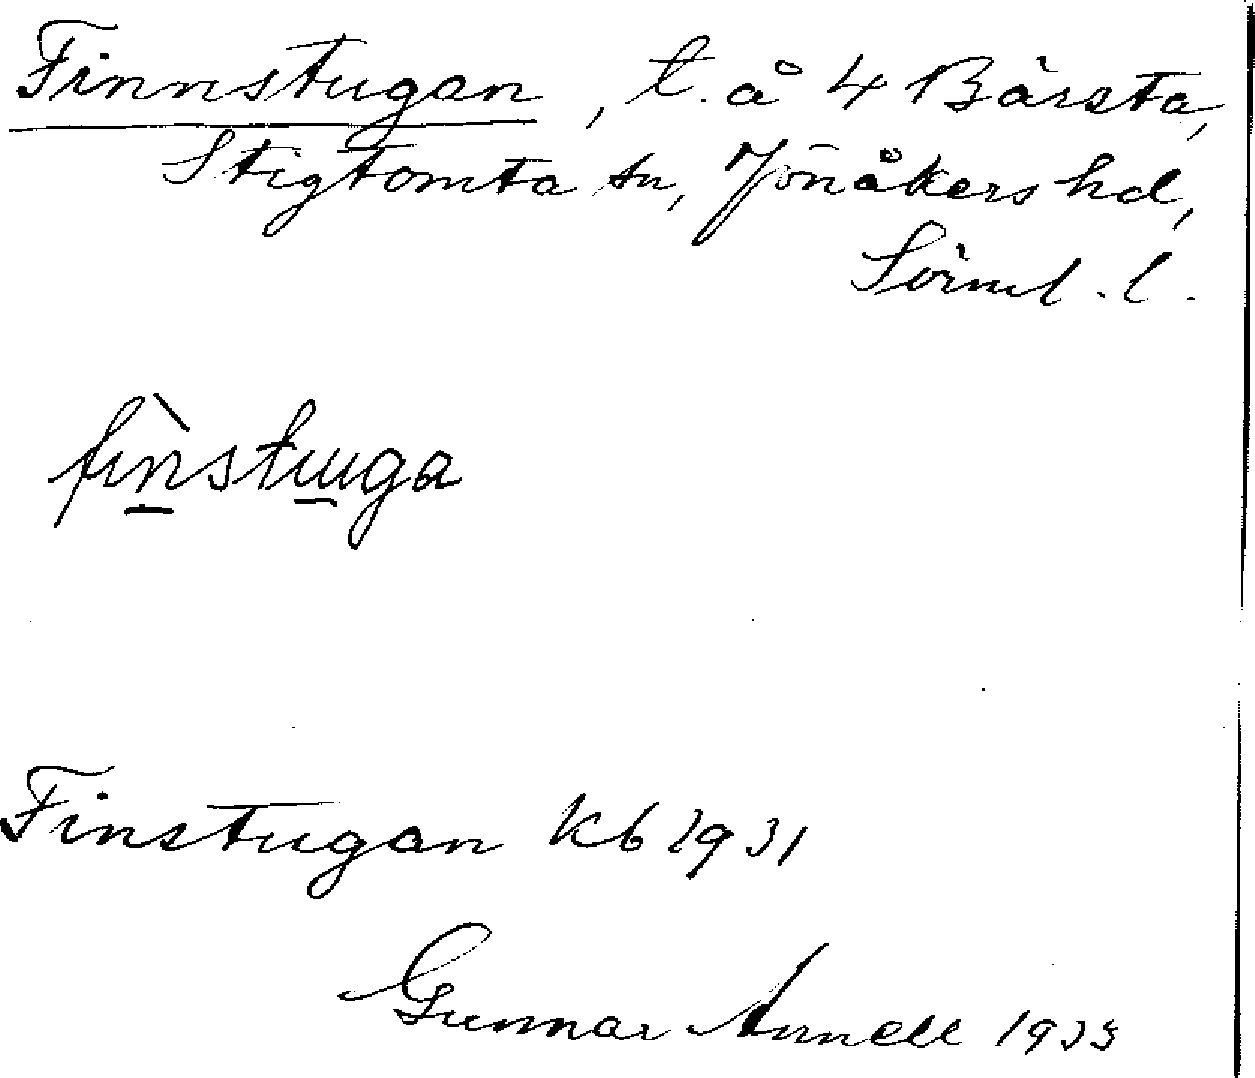 Finnstugan, t. å 4 Bärsta,
Stigtomta sn, Jönåkers hd,
Sörml. l.
fìnstuga
Finstugan Kb 1931
Gunnar Annell 1933